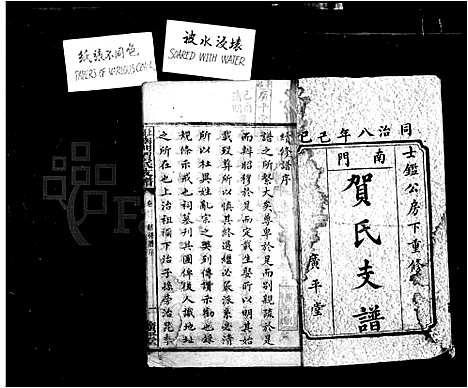 紙張不同色
PAPERS OF VARIOUS COLOR
被水浸壊
SOAKED WITH WATER
同治八年己巳
南門
士鑑公房下重修
賀氏支譜
廣平堂
續修譜序
譜之所繫大矣尊卑於是而別親疏於是
而辨昭穆於是而定生聚於是而明其始
載致尊所以慎其終遷繼必嚴派系必清
所以杜異姓亂宗之弊列傳讚示勸也録
規條示戒也祠墓刊其圖俾後人識地址
之所在也上治祖禰下治子孫旁治昆季